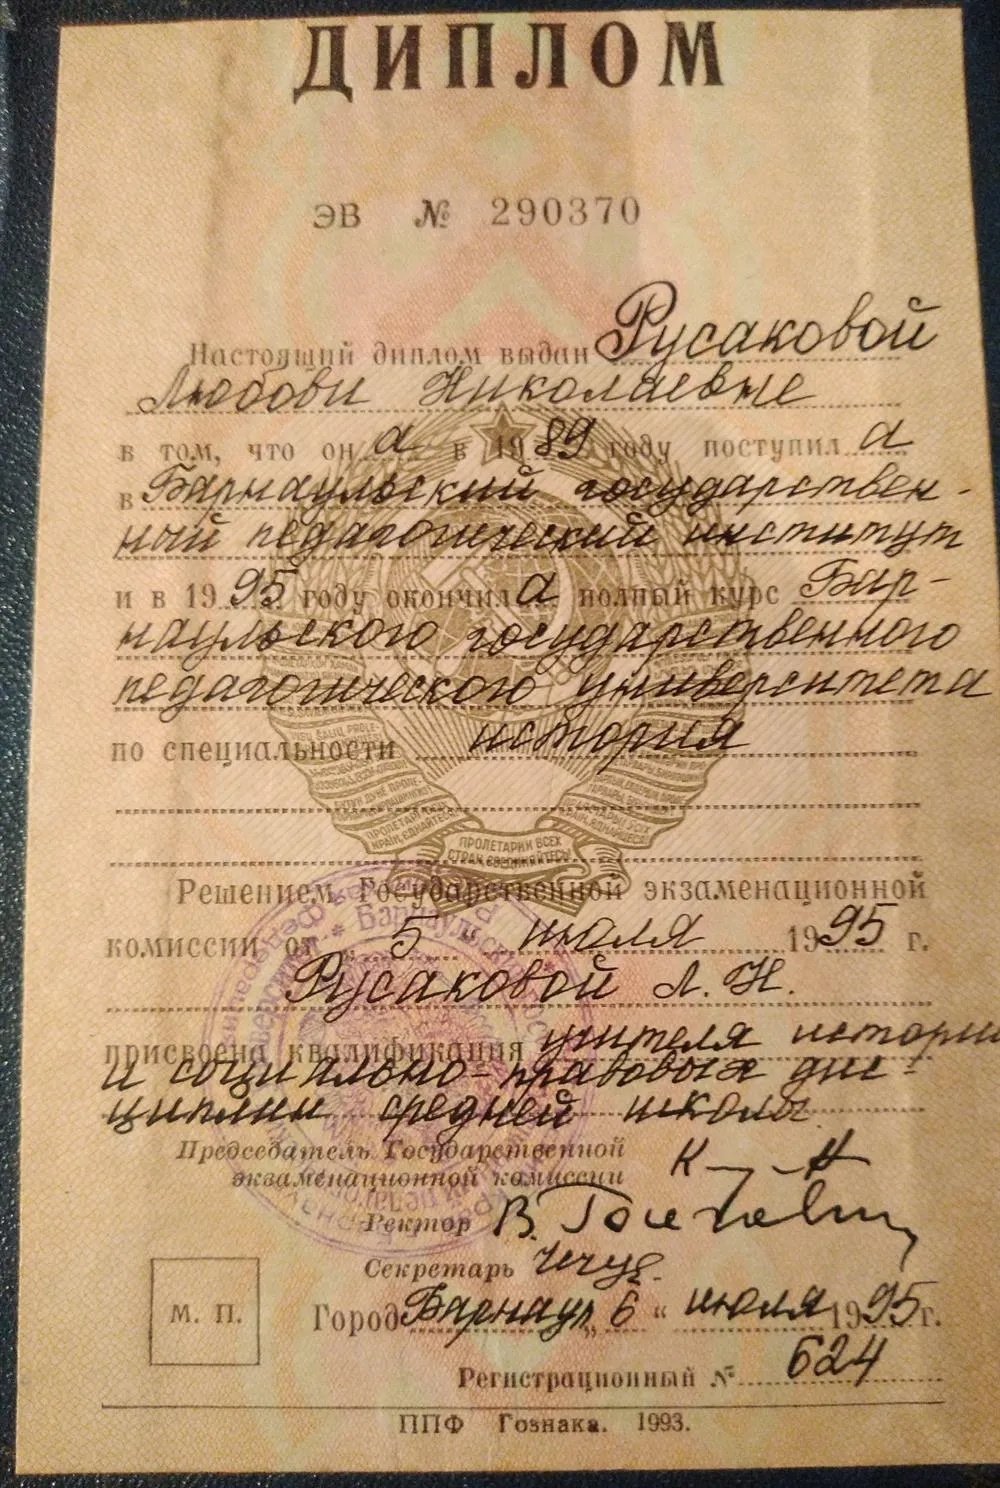 ДИПЛОМ
ЭВ № 290370
Настоящий диплом выдан Русаковой
Любови Николаевне
в том, что он а в 1989 году поступил а
в Барнаульский государствен-
ный педагогический институт
и в 1995 году окончил а полный курс Бар-
наульского государственного
педагогического университета
по специальности история
ПРОЛЕТАРИИ ВСЕХ
СТРАН, СОЕДИНЯЙТЕСЬ!
Решением Государственной экзаменационной
комиссии от „ 5 “ июля 1995 г.
Русаковой Л. Н.
присвоена квалификация учителя истории
и социально-правовых дис-
циплин средней школы.
Председатель Государственной
экзаменационной комиссии
Ректор
Секретарь
М. П.
Город Барнаул „ 6 “ июля 1995 г.
Регистрационный № 624
ППФ Гознака. 1993.